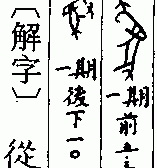 一期前五
一期後下一〇
〔解字〕從